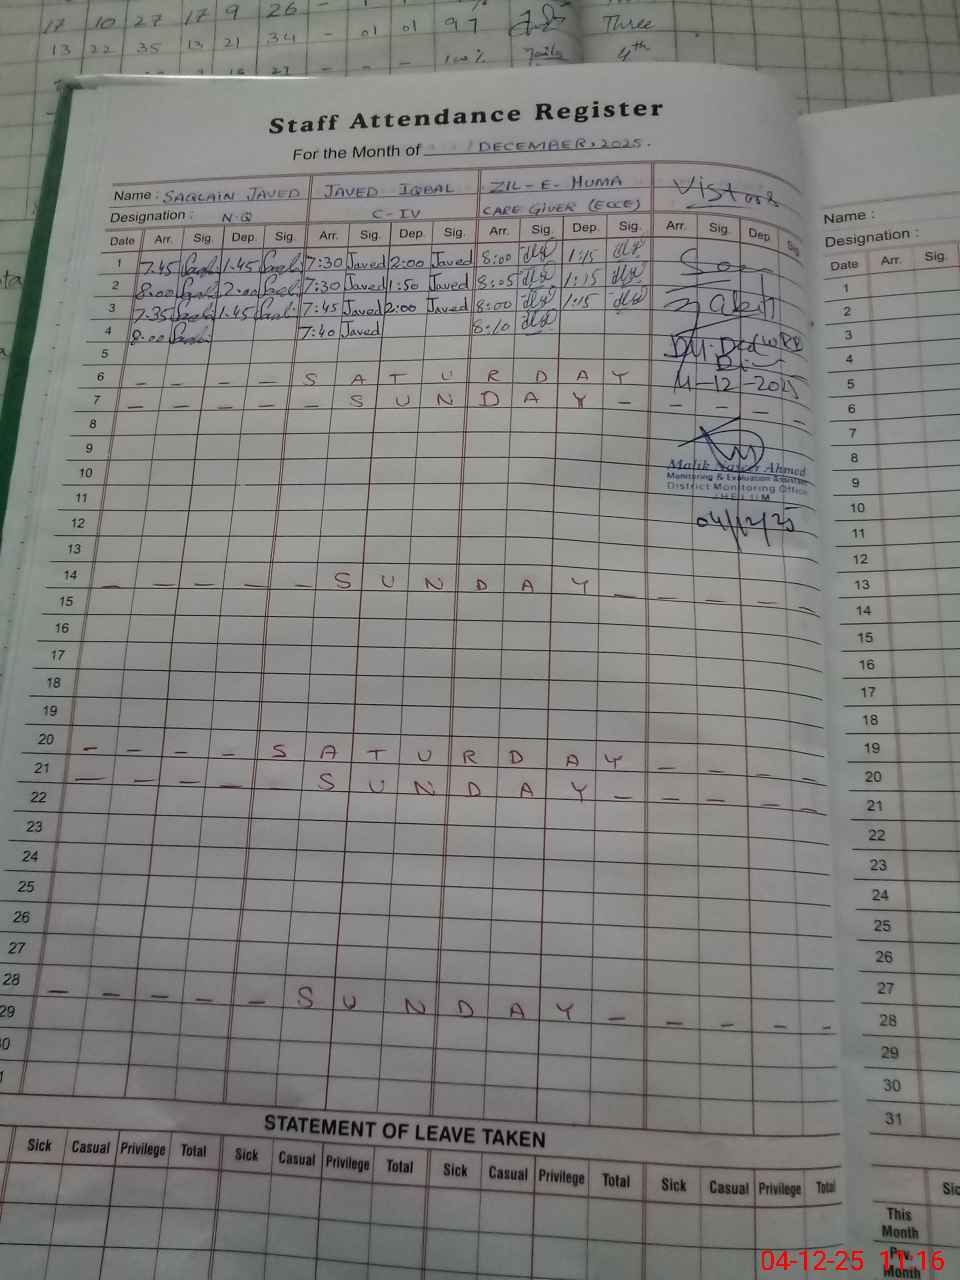 17 10 27 17 9 26 -
13 22 35 13 21 34 - 01 01 97 Three
27 - - - 100% 4th
Staff Attendance Register
For the Month of DECEMBER, 2025.
Name : SAQLAIN JAVED JAVED IQBAL ZIL-E-HUMA
Designation : N.Q C-IV CARE GIVER (ECCE)
Date Arr. Sig. Dep. Sig. Arr. Sig. Dep. Sig. Arr. Sig. Dep. Sig. Arr. Sig. Dep. Sig.
1 7.45 1.45 7:30 Javed 2:00 Javed 8:00 1:15
2 8.00 2.00 7:30 Javed 1:50 Javed 8:05 1:15
3 7.35 1.45 7:45 Javed 2:00 Javed 8:00 1:15
4 8.00 7:40 Javed 8:10
5
6 - - - - S A T U R D A Y
7 - - - - - S U N D A Y - - - - -
8
9
10
11
12
13
14 - - - - - S U N D A Y - - - - -
15
16
17
18
19
20 - - - - S A T U R D A Y - - - -
21 - - - - S U N D A Y - - - - -
22
23
24
25
26
27
28 - - - - - S U N D A Y - - - - -
29
Malik Ahmed
Monitoring & Evaluation
District Monitoring Office
JHELUM
04/12/25
STATEMENT OF LEAVE TAKEN
Sick Casual Privilege Total Sick Casual Privilege Total Sick Casual Privilege Total Sick Casual Privilege Total
Name :
Designation :
Date Arr. Sig.
1
2
3
4
5
6
7
8
9
10
11
12
13
14
15
16
17
18
19
20
21
22
23
24
25
26
27
28
29
30
31
This
Month
Prv.
Month
04-12-25 11:16